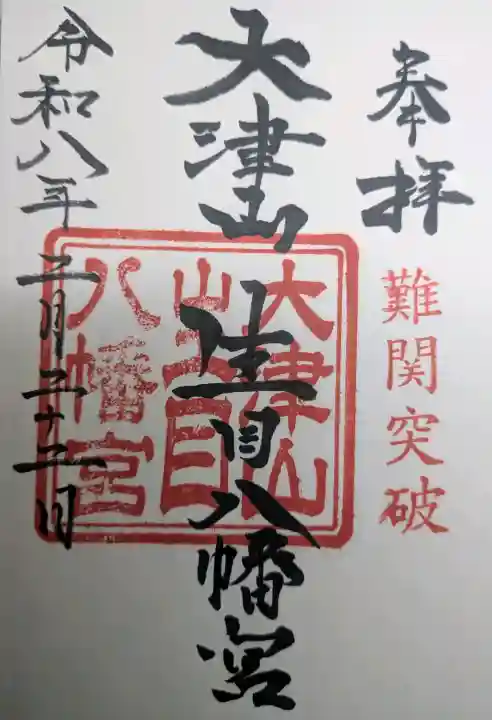 奉拝
難関突破
大津山 生目八幡宮
大津山
生目
八幡宮
令和八年二月二十二日